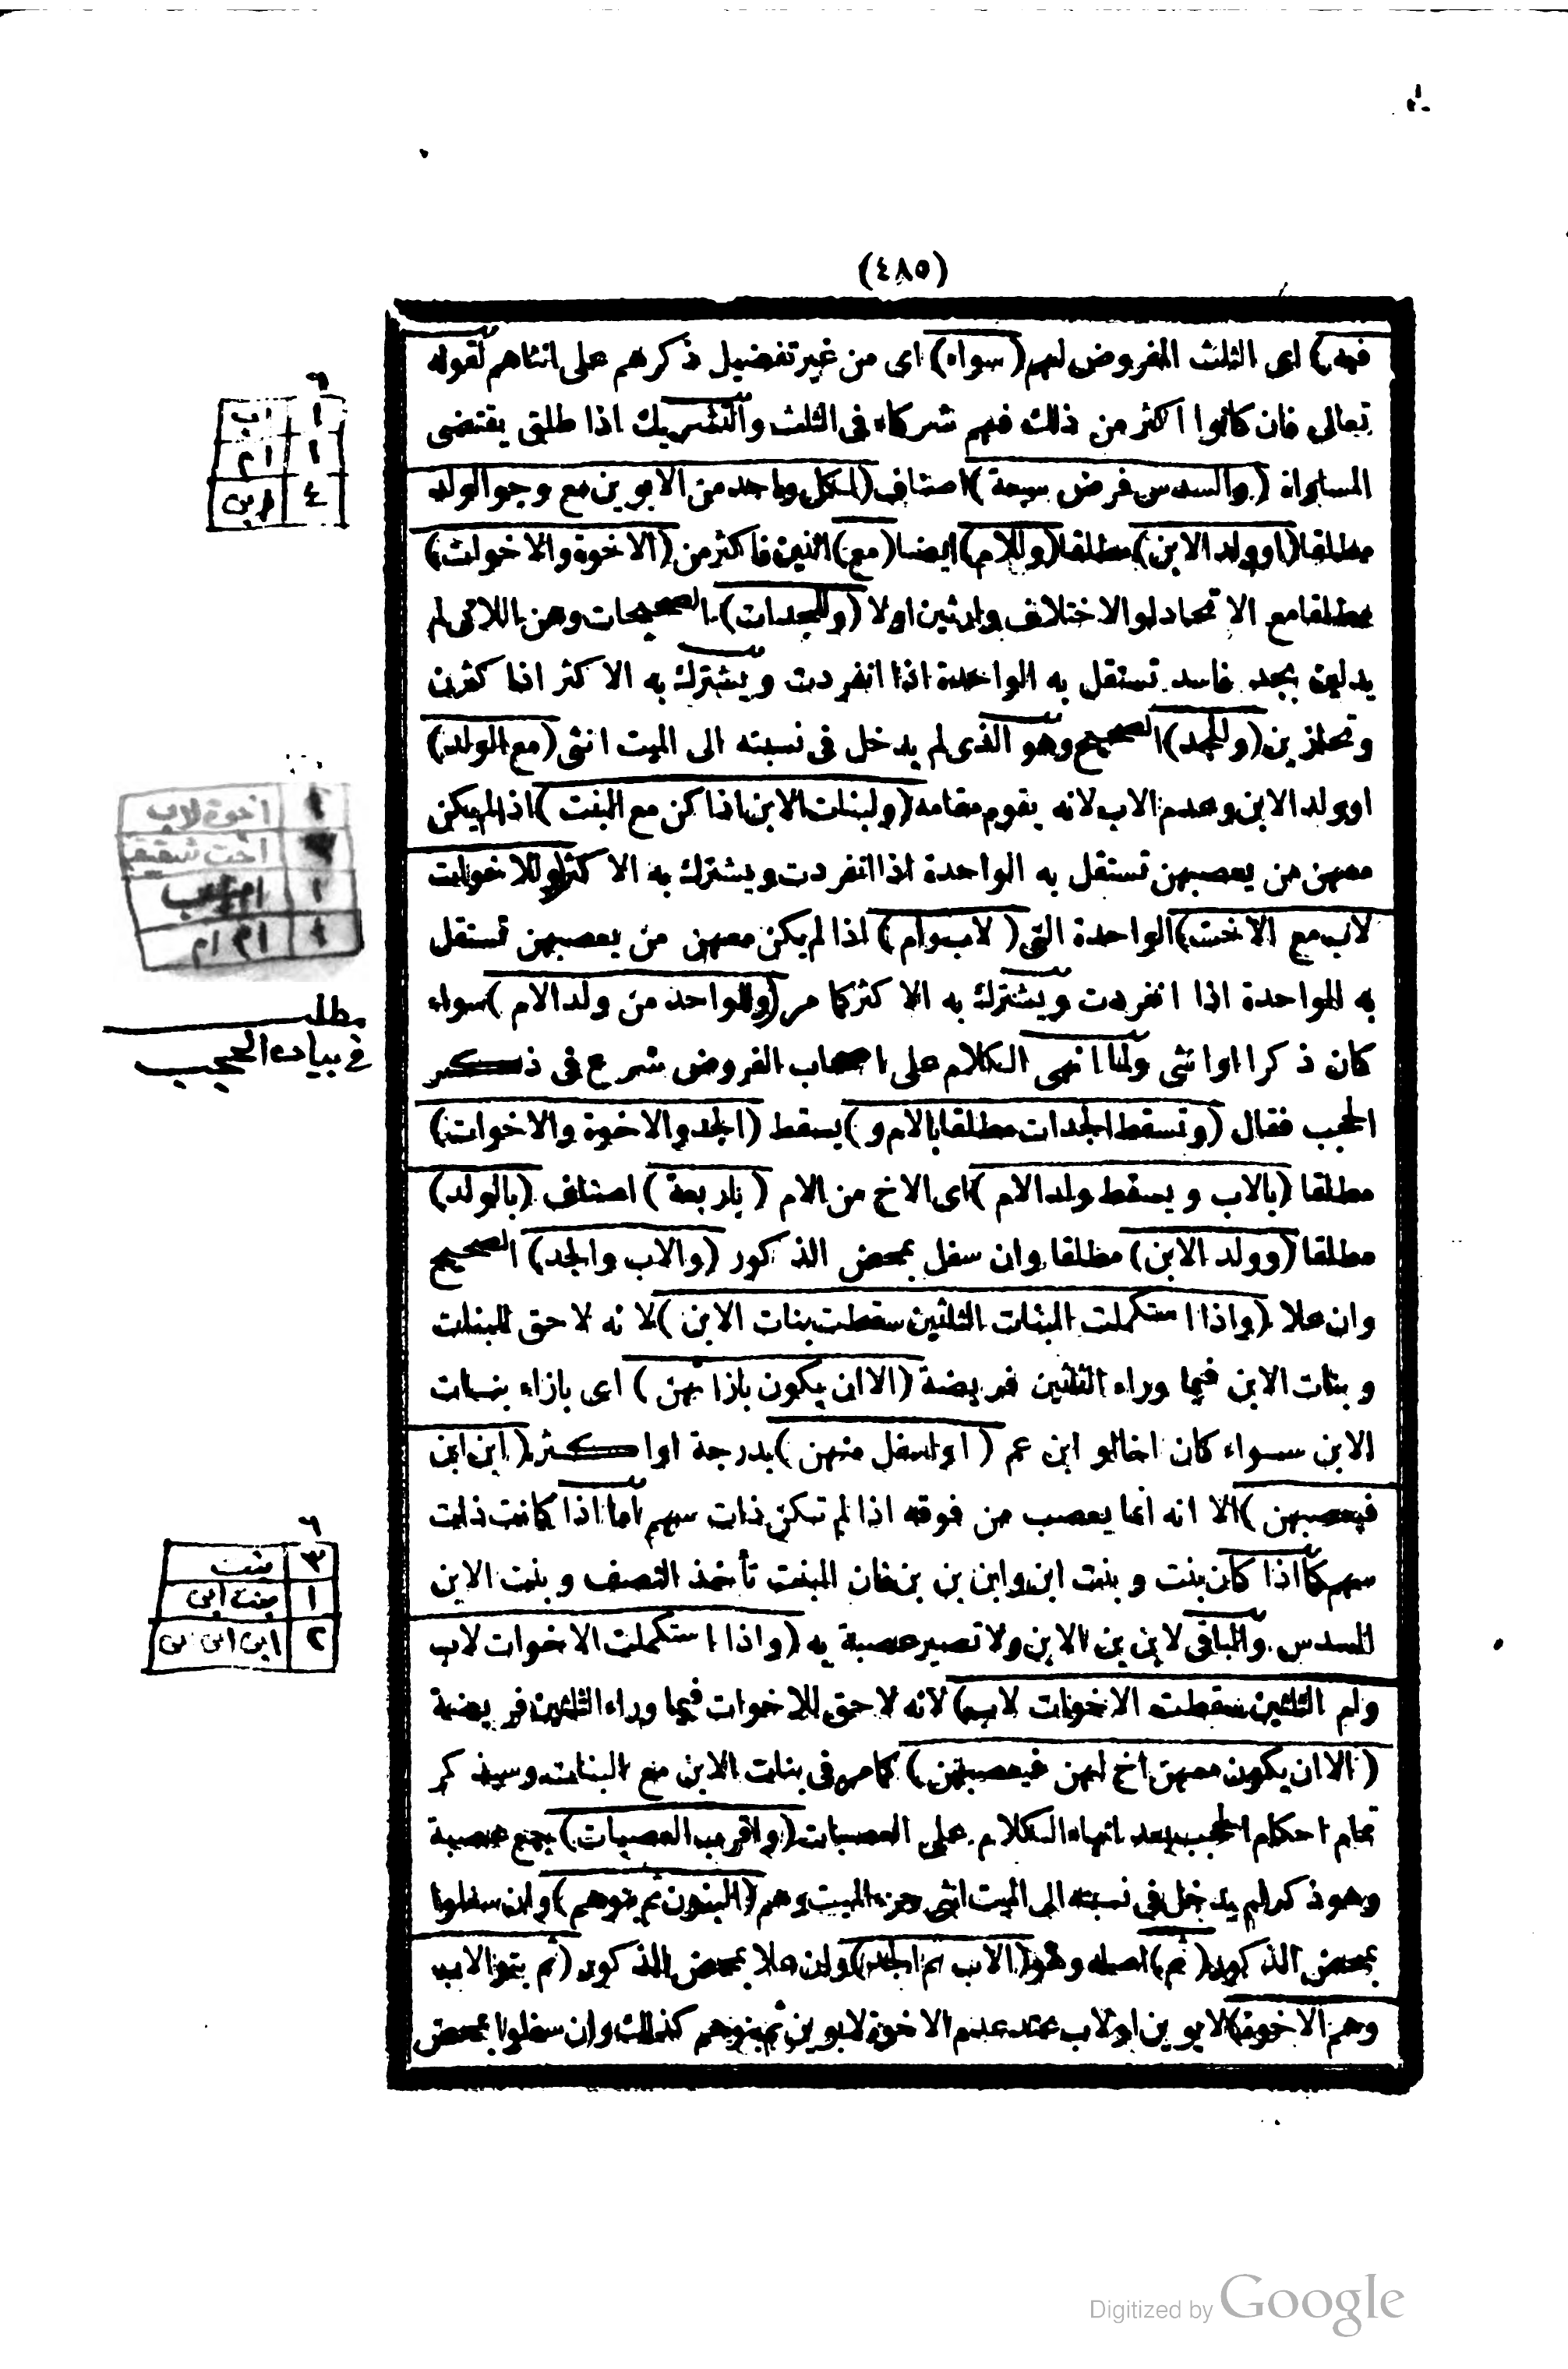 (٤٨٥)
فيه) اى الثلث المفروض لهم (سواء) اى من غير تفضيل ذكرهم على انثاهم لقوله
تعالى فان كانوا اكثر من ذلك فهم شركاء فى الثلث والتشريك اذا طلق يقتضى
المساواة (والسدس فرض سبعة) اصناف (لكل واحد من الابوين مع وجو الولد
مطلقا (او ولد الابن) مطلقا (وللام) ايضا (مع) اثنين فاكثر من (الاخوة والاخوات)
مطلقا مع الاتحاد او الاختلاف وارثين اولا (وللجدات) الصحيحات وهن اللاتى لم
يدلين بجد فاسد تستقل به الواحدة اذا انفردت ويشترك به الاكثر اذا كثرن
وتحاذين (وللجد) الصحيح وهو الذى لم يدخل فى نسبته الى الميت انثى (مع الولد)
او ولد الابن وعدم الاب لانه يقوم مقامه (ولبنات الابن اذا كن مع البنت) اذا لم يكن
معهن من يعصبهن تستقل به الواحدة اذا انفردت ويشترك به الاكثر (وللاخوات
لاب مع الاخت) الواحدة التى (لاب وام) اذا لم يكن معهن من يعصبهن تستقل
به الواحدة اذا انفردت ويشترك به الاكثر كما مر (وللواحد من ولد الام) سواء
كان ذكرا او انثى ولما انهى الكلام على اصحاب الفروض شرع فى ذكر
الحجب فقال (وتسقط الجدات مطلقا بالام و) يسقط (الجد والاخوة والاخوات)
مطلقا (بالاب ويسقط ولد الام) اى الاخ من الام (باربعة) اصناف (بالولد)
مطلقا (وولد الابن) مطلقا وان سفل بمحض الذكور (والاب والجد) الصحيح
وان علا (واذا استكملت البنات الثلثين سقطت بنات الابن) لانه لا حق للبنات
وبنات الابن فيما وراء الثلثين فريضة (الا ان يكون بازائهن) اى بازاء بنات
الابن سواء كان اخا او ابن عم (او اسفل منهن) بدرجة او اكثر (ابن ابن
فيعصبهن) الا انه انما يعصب من فوقه اذا لم تكن ذات سهم اما اذا كانت ذات
سهم كما اذا كان بنت وبنت ابن وابن بن بن فان البنت تأخذ النصف وبنت الابن
السدس والباقى لابن بن الابن ولا تصير عصبة به (واذا استكملت الاخوات لاب
ولم الثلثين سقطت الاخوات لاب) لانه لا حق للاخوات فيما وراء الثلثين فريضة
(الا ان يكون معهن اخ لهن فيعصبهن) كما مر فى بنات الابن مع البنات وسيذكر
تمام احكام الحجب بعد انهاء الكلام على العصبات (واقرب العصبات) جمع عصبة
وهو ذكر لم يدخل فى نسبته الى الميت انثى جزء الميت وهم (البنون ثم بنوهم) وان سفلوا
بمحض الذكور (ثم) اصله وهو (الاب ثم الجد) وان علا بمحض الذكور (ثم بنو الاب
وهم الاخوة) لابوين او لاب عند عدم الاخوة لابوين ثم بنوهم كذلك وان سفلوا بمحض
٦
١ اب
١ ام
٤ ابن
اخوة لاب
اخت شقيقة
١ ام
مطلب
فى بيان الحجب
٦
٣ بنت
١ بنت ابن
٢ ابن ابن بن
Digitized by Google